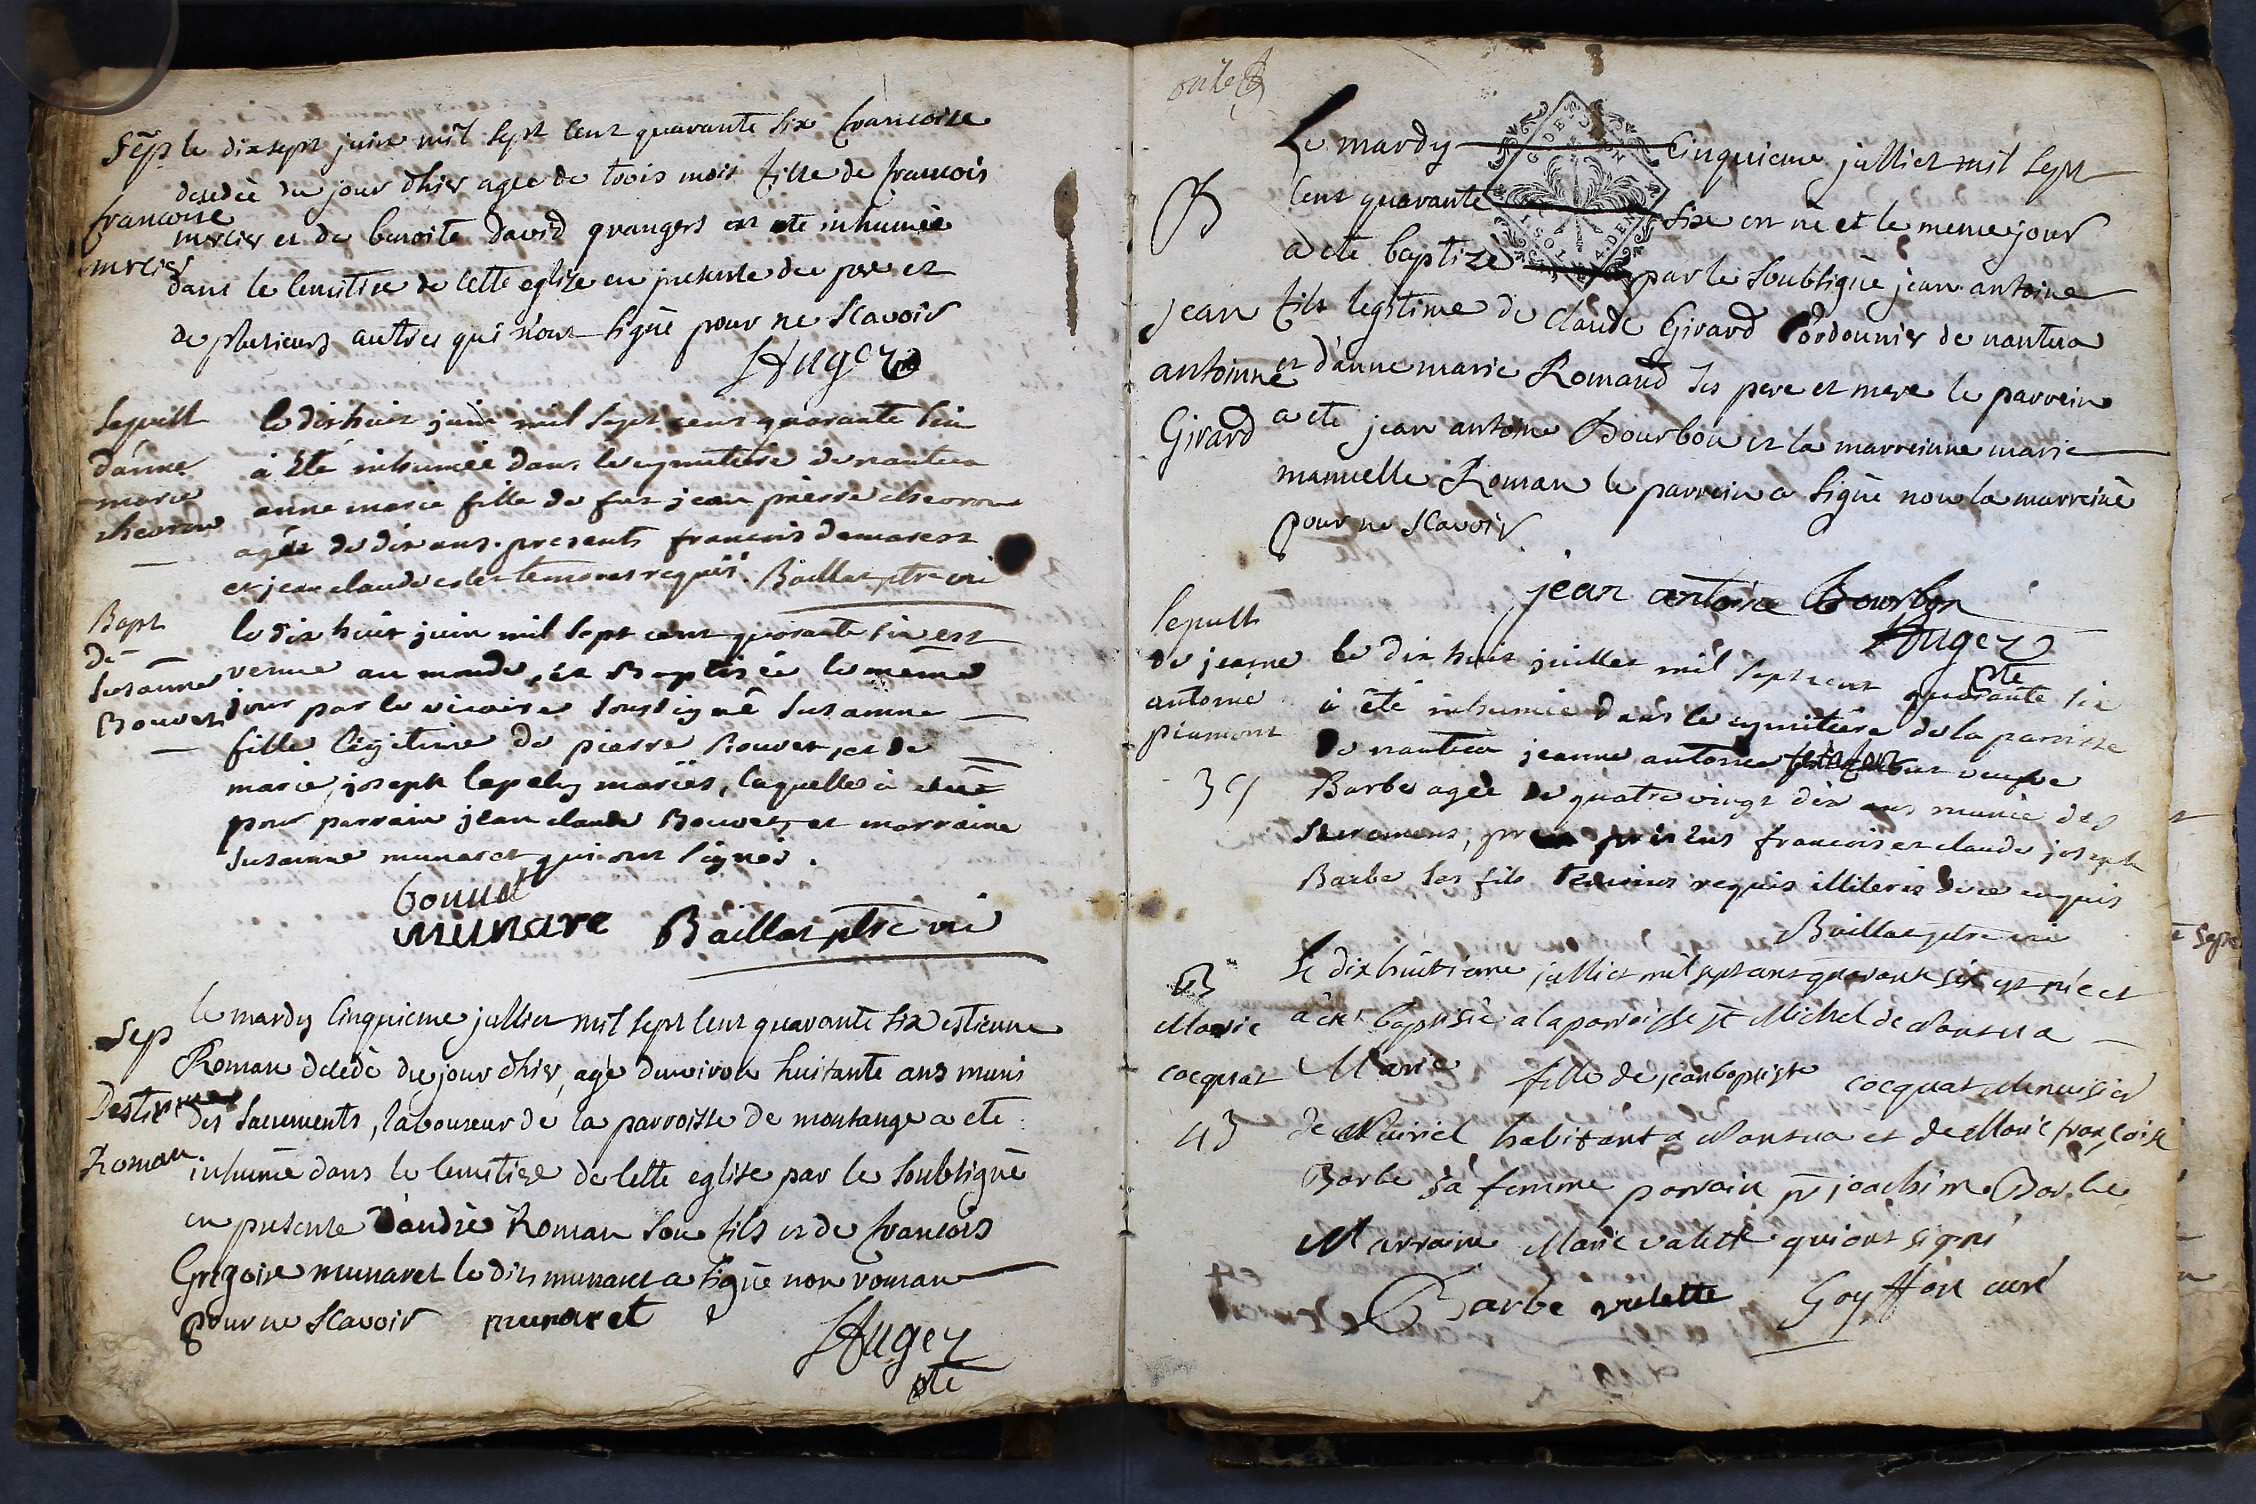 Sep le dix sept juin mil sept cent quarante six francoise
decedeé du jour dhier agee de trois mois fille de francois
francoise
mercier et de benoite david grangers est ete inhumeé
mercier
dans le cemitire de cette eglize en presence du pere et
de plusieurs autres qui n'ont signé pour ne scavoir
Hugez
Sepult le dix huit juin mil sept cent quarante six
d'anne à été inhumée dans le cymitiere de nantua
marie anne marie fille de feu jean pierre
agée de dix ans. presents francois demarest
et jean claude temoins requis. Baillat ptre vic
Bapt le dix huit juin mil sept cent quarante six est
de
Susanne venue au monde, et Baptisée le meme
Bouvet jour par le vicaire soussigné susanne
fille légitime de pierre Bouvet, et de
marie joseph lapely mariés, laquelle à
pour parrain jean claude Bouvet, et marraine
susanne munaret qui ont signés.
bouvet
munare Baillat ptre vic
Sep le mardy cinquieme jullier mil sept cent quarante six estienne
Roman decedé du jour dhier, agé denviron huitante ans muni
Destienne des sacrements, laboureur de la parroisse de montange a ete
Roman inhumé dans le cemitire de cette eglise par le soubsigné
en presence dandré Roman son fils et de francois
Gregoire munaret le dit munaret a signé non roman
pour ne scavoir munaret
Hugez
ptre
Le mardy cinquieme jullier mil sept
B cent quarante six est né et le meme jour
a ete baptizé par le soubsigné jean antoine
jean fils legitime de claude Girard Cordounier de nantua
antoinne et d'anne marie Romand ses pere et mere le parrein
Girard a ete jean antoine Bourbon et la marreinne marie
manuelle Roman le parrein a signé non la marreine
pour ne scavoir
jean antoine Bourbon
Hugez
ptre
Sepult
de jeanne le dix huit juillet mil sept cent quarante six
antoine à été inhumée dans le cymitiere de la paroisse
piemont de nantua jeanne antoine veufve
39 Barbe agée de quatre vingt dix ans munie des
sacremens, présens francois et claude joseph
Barbe ses fils temoins requis illiteris de ce enquis
Baillat ptre vic
B Le dixhuitieme jullier mil sept cent quarante six est née et
Marie a été baptisée a la parroisse St Michel de Nantua
cocquat Marie fille de jean baptiste cocquat Menuisier
43 de habitant a Nantua et de Marie françoise
Barbe sa femme parrain pr joachim Barbe
Marraine Marie valette qui ont signé
Barbe valette Goyffon curé